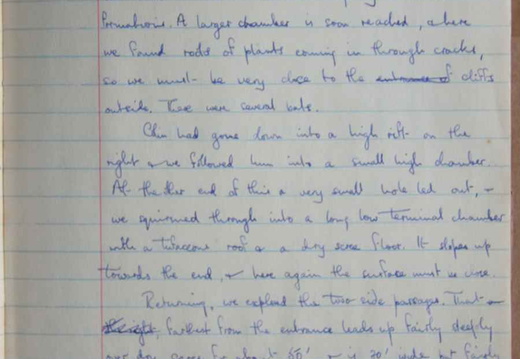 formations. A larger chamber is soon reached, where
we found roots of plants coming in through cracks,
so we must be very close to the entrance of cliffs
outside. There were several bats.
had gone down into a high rift on the
right & we followed him into a small high chamber.
At the far end of this a very small hole led out, &
we squirmed through into a long low terminal chamber
with a tufaceous roof & a dry scree floor. It slopes up
towards the end, & here again the surface must be close.
Returning, we explored the two side passages. That
the right, farthest from the entrance leads up fairly steeply
over dry scree for about 50' & is 20' but fairly